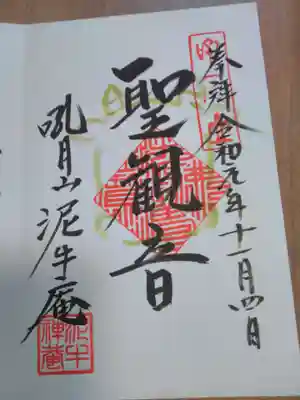 奉拝 令和元年十一月四日
聖観音
吼月山 泥牛庵
泥牛禅菴